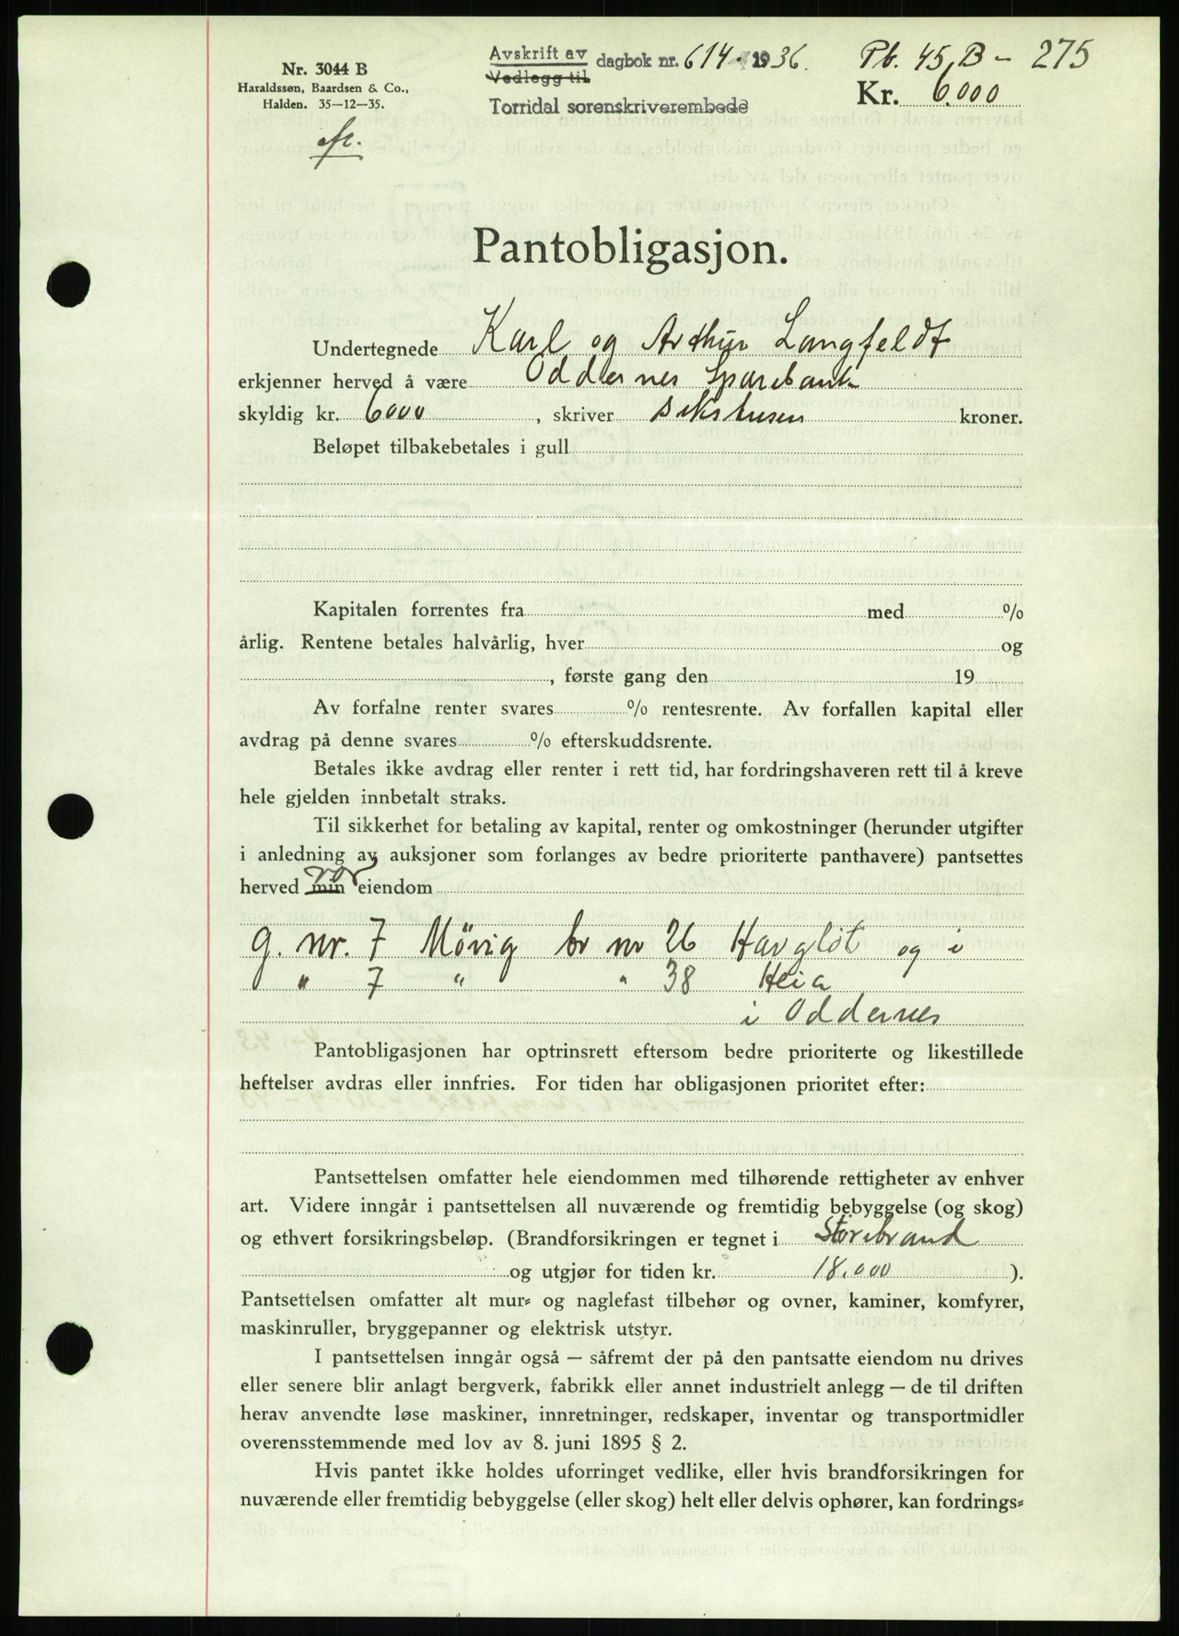 Nr. 3044 B
Haraldssøn, Baardsen & Co.,
Halden. 35-12-35.
Avskrift av
Vedlegg til
dagbok nr. 614. 1936.
Torridal sorenskriverembede
Pb. 45, B - 275
Kr. 6.000
Pantobligasjon.
Undertegnede Karl og Arthur Langfeldt
erkjenner herved å være Oddernes Sparebank
skyldig kr. 6000, skriver sekstusen kroner.
Beløpet tilbakebetales i gull
Kapitalen forrentes fra med %
årlig. Rentene betales halvårlig, hver og
, første gang den 19
Av forfalne renter svares % rentesrente. Av forfallen kapital eller
avdrag på denne svares % efterskuddsrente.
Betales ikke avdrag eller renter i rett tid, har fordringshaveren rett til å kreve
hele gjelden innbetalt straks.
Til sikkerhet for betaling av kapital, renter og omkostninger (herunder utgifter
i anledning av auksjoner som forlanges av bedre prioriterte panthavere) pantsettes
herved min vor eiendom
g. nr. 7 Møvig br nr 26 og i
" 7 " " 38 Heia
i Oddernes
Pantobligasjonen har optrinsrett eftersom bedre prioriterte og likestillede
heftelser avdras eller innfries. For tiden har obligasjonen prioritet efter:
Pantsettelsen omfatter hele eiendommen med tilhørende rettigheter av enhver
art. Videre inngår i pantsettelsen all nuværende og fremtidig bebyggelse (og skog)
og ethvert forsikringsbeløp. (Brandforsikringen er tegnet i Storebrand
og utgjør for tiden kr. 18.000 ).
Pantsettelsen omfatter alt mur- og naglefast tilbehør og ovner, kaminer, komfyrer,
maskinruller, bryggepanner og elektrisk utstyr.
I pantsettelsen inngår også — såfremt der på den pantsatte eiendom nu drives
eller senere blir anlagt bergverk, fabrikk eller annet industrielt anlegg — de til driften
herav anvendte løse maskiner, innretninger, redskaper, inventar og transportmidler
overensstemmende med lov av 8. juni 1895 § 2.
Hvis pantet ikke holdes uforringet vedlike, eller hvis brandforsikringen for
nuværende eller fremtidig bebyggelse (eller skog) helt eller delvis ophører, kan fordrings-